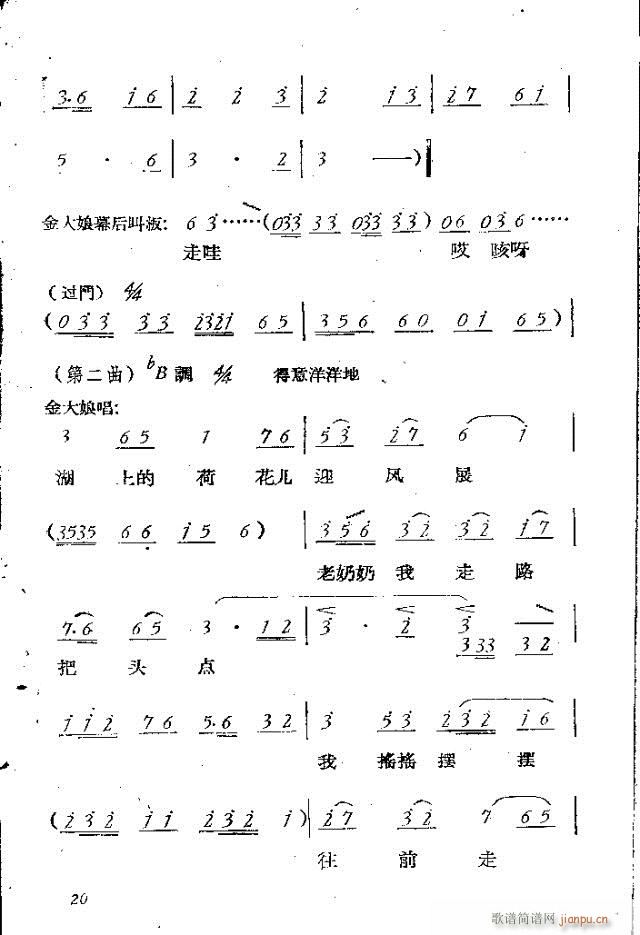 3·6 i6 | 2 2 3 | 2 i3 | 27 6i |
5 · 6 | 3 · 2 | 3 —)
金大娘幕后叫板: 6 3……(033 33 033 33) 06 036……
走哇 哎 咳呀
(过門) 4/4
(0 3 3 3 3 2321 6 5 | 3 5 6 6 0 0 i 6 5)
(第二曲) bB 調 4/4 得意洋洋地
金大娘唱:
3 6 5 1 7 6 | 5 3 2 7 6 i
湖 上的 荷 花儿 迎 风 展
(3535 6 6 i 5 6) | 3 5 6 3 2 3 2 i 7
老奶奶 我 走 路
7·6 6 5 3 · 1 2 | 3 · 2 3
3 33 3 2
把 头 点
i i 2 7 6 5·6 3 2 | 3 5 3 2 3 2 i 6
我 搖搖 摆 摆
(2 3 2 i i 2 3 2 i) | 2 7 3 2 7 6 5
往 前 走
20
歌谱简谱网
jianpu.cn